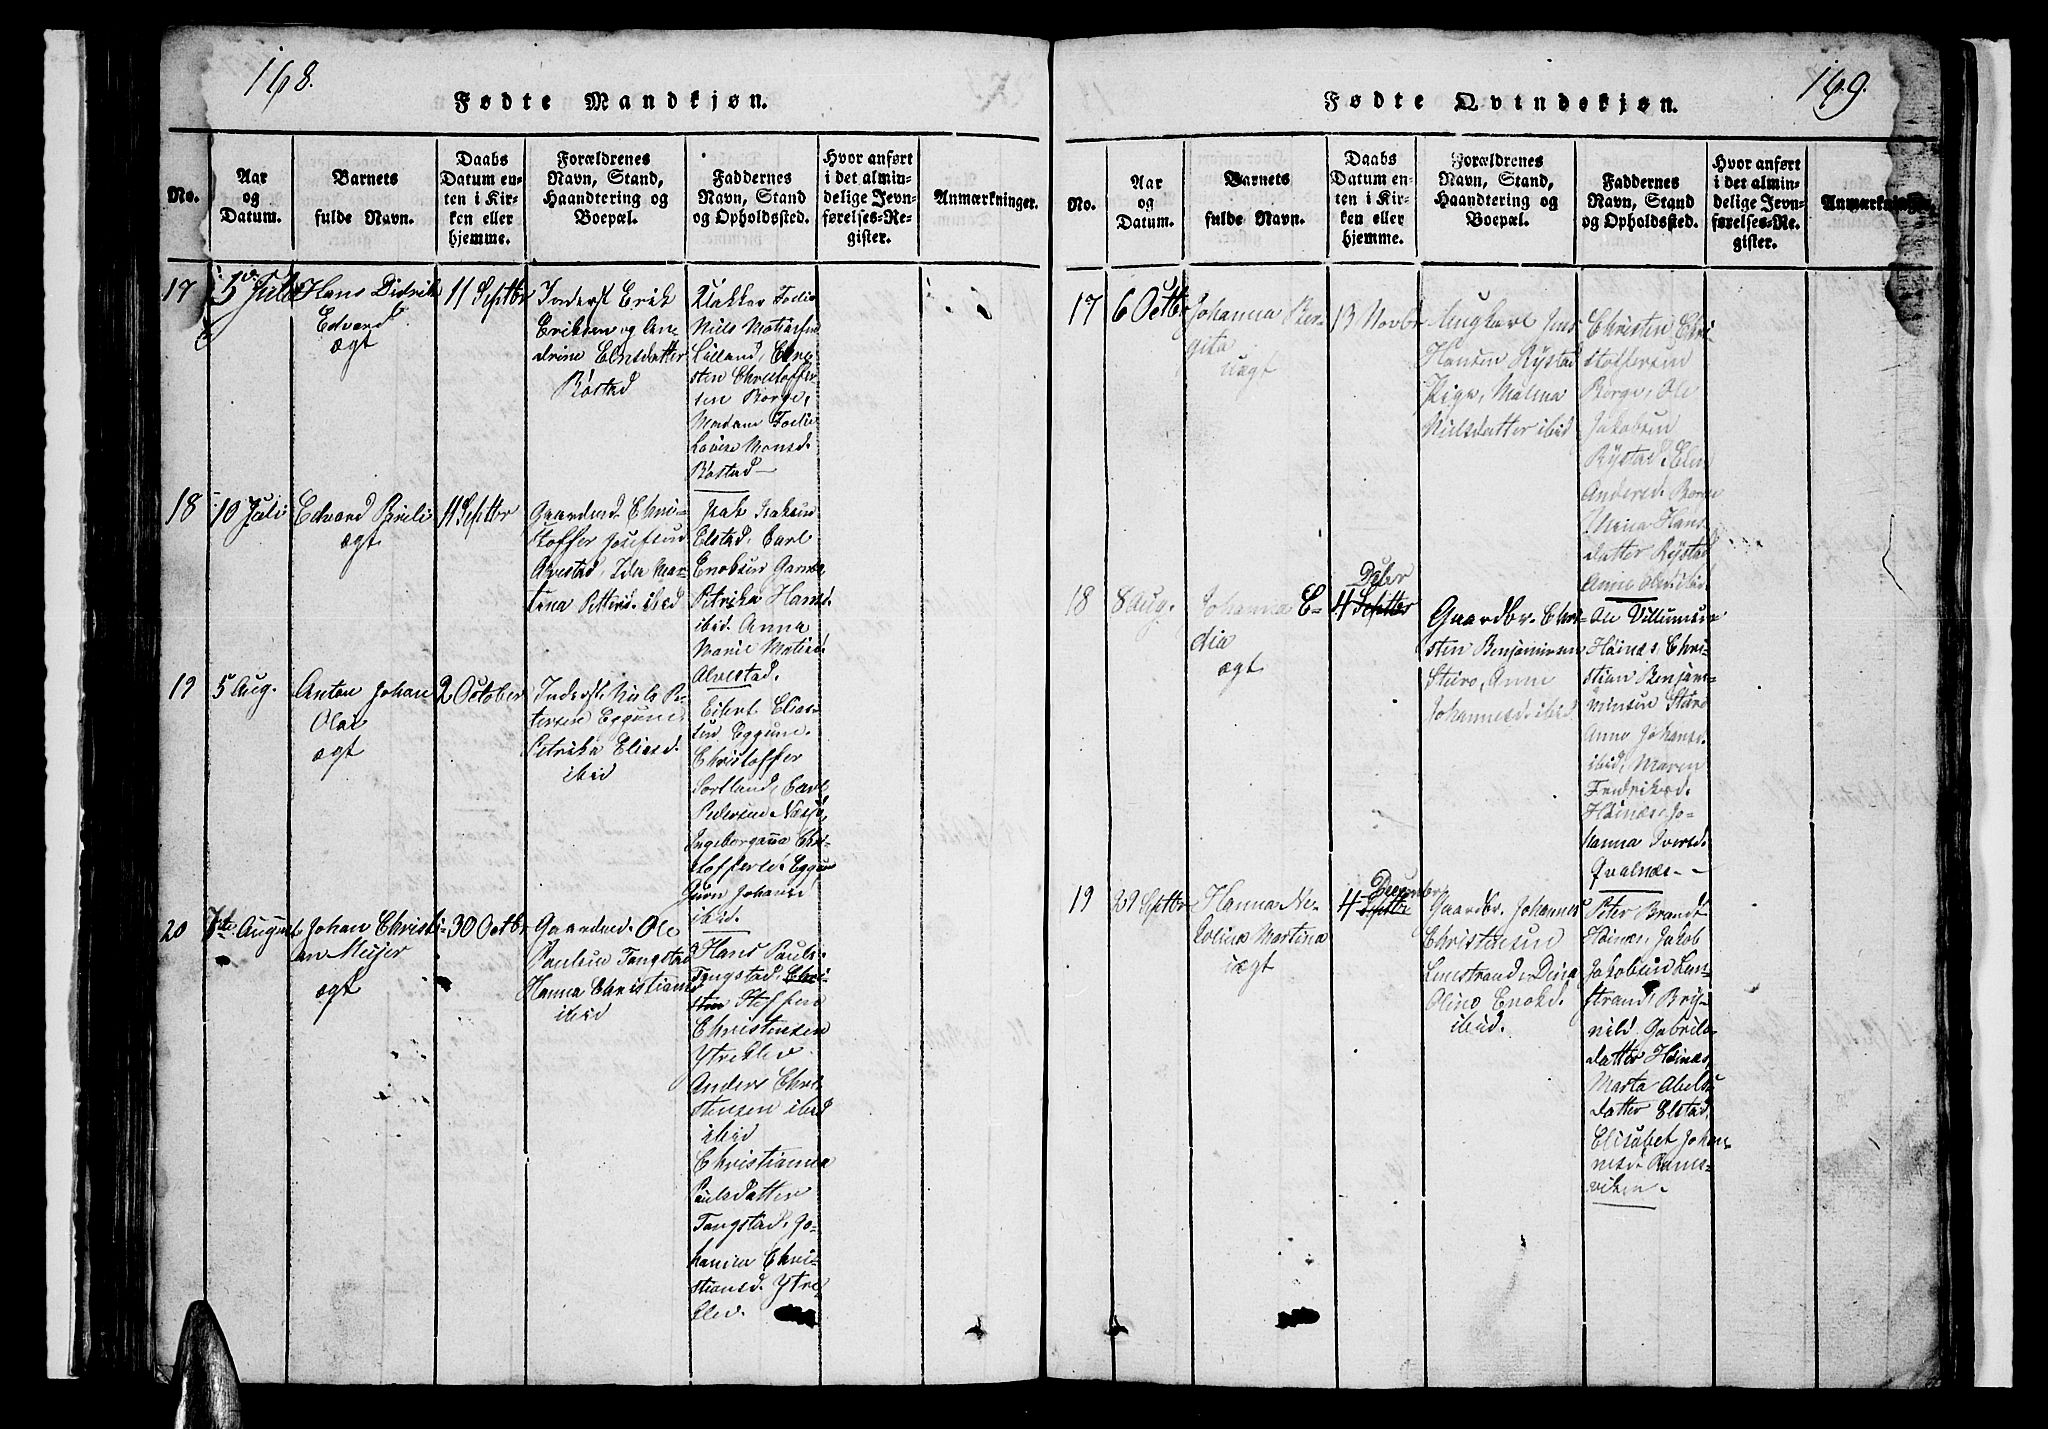 168.
Fødte Mandkjøn.
No.
Aar
og
Datum.
Barnets
fulde Navn.
Daabs
Datum en-
ten i Kir-
ken eller
hjemme.
Forældrenes
Navn, Stand,
Haandtering og
Boepæl.
Faddernes
Navn, Stand
og Opholdssted.
Hvor anført
i det almin-
delige Jevn-
førelses-Re-
gister.
Anmærkninger.
17
5 Juli
Hans Didrik
Edvard
ægt
11 Septbr
Inderst Erik
Eriksen og
drine Elnsdatter
Røstad
Klokker
Niels Matiasen
Lilland,
sten Christoffer-
sen Borge,
Madame
Lovise Monsd.
Røstad
18
10 Juli
Edvard
ægt
11 Septbr
Gaardmd. Chri-
stoffer Josefsen
Alvestad, Ida Mar-
tina Pettersd. ibid
Isak Isaksen
Elstad, Carl
Enoksen
Petrika Hansd.
ibid. Anna
Marie Matisd.
Alvestad.
19
5 Aug.
Anton Johan
Olai
ægt
2 October
Inderst. Niels Pe-
tersen Eggum
Petrika Eliasd.
ibid
Eilert Elias-
sen Eggum.
Christoffer
Sortland, Carl
Pedersen
Ingeborganna Chri-
stoffersd. Eggum
Johansd
ibid.
20
7de August
Johan Christi-
an Meijer
ægt
30 Octbr
Gaardmd. Ole
Paulsen Tangstad
Hanna Christiansd
ibid
Hans Pauls.
Tangstad, Chri-
sten Steffen
Christensen
Ytreklev
Anders Chri-
stensen ibid
ibid
Christianna
Paulsdatter
Tangstad, Jo-
hanna Chri-
stiansd. Ytre-
klev.
169.
Fødte Qvindekjøn.
No.
Aar
og
Datum.
Barnets
fulde Navn.
Daabs
Datum en-
ten i Kir-
ken eller
hjemme.
Forældrenes
Navn, Stand,
Haandtering og
Boepæl.
Faddernes
Navn, Stand
og Opholdssted.
Hvor anført
i det almin-
delige Jevn-
førelses-Re-
gister.
Anmærkninger.
17
6 Octbr
Johanna Ber-
gita
uægt
13 Novbr
Ungkarl Jens
Hansen Rystad
Pige, Malena
Nielsdatter ibid
Christen Chri-
stoffersen
Borge, Ole
Jakobsen
Rystad, Elen
Andersd. Borge
Hans
datter Rystad
Anne Olsd ibid
18
8 Aug.
Johanna E-
dia
ægt
Dcbr
4 Septbr
Gaardbr. Chri-
sten Benjaminsen
Steiro, Anne
Johannesd. ibid
Ole Villumsen
Høinæs, Chri-
stian Benja-
minsen Steiro
Anne Johansd.
ibid, Maren
Fredriksd.
Høinæs, Jo-
hanna Iversd.
Qvalnæs
19
29 Septbr
Hanna Ne-
koline Martina
uægt
December
4 Septbr
Gaardbr. Johannes
Christensen
Limstrand, Dina
Oline Enoksd.
ibid.
Peter Brandt
Høinæs, Jakob
Jakobsen Lim-
strand, Bry-
nild Gabriels-
datter Høinæs,
Marta Abels-
datter Elstad,
Elisabet Johan-
nesd. Rams-
viken.